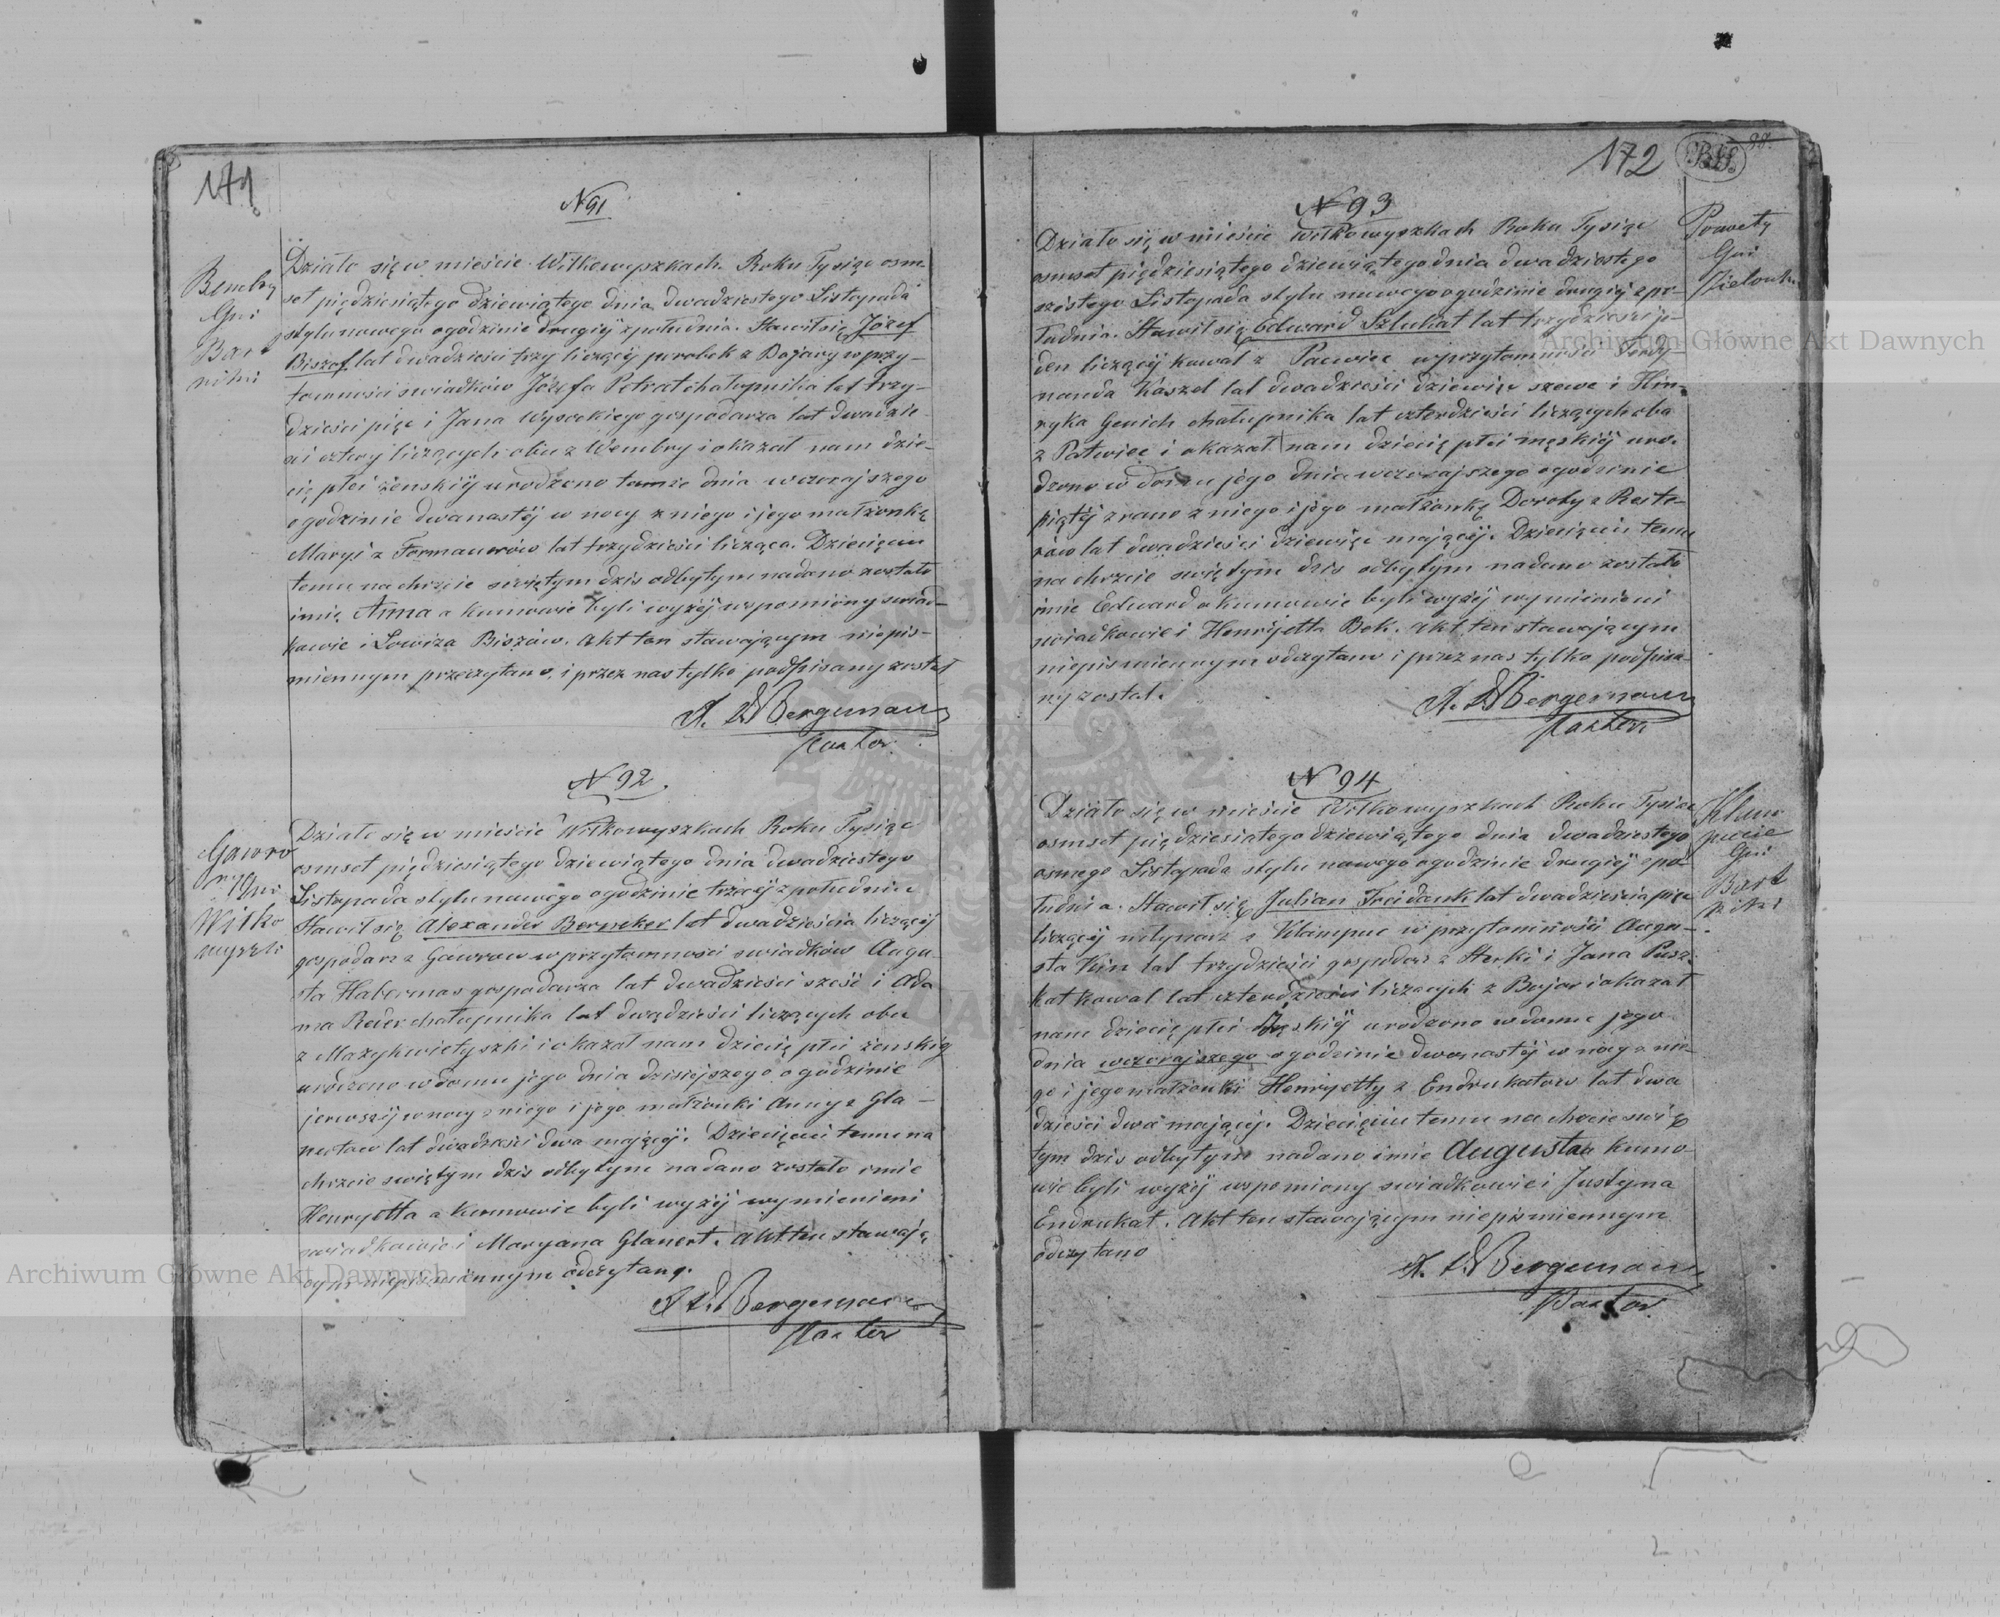 171.
N 91
Bembry
Gmi
Bart
niki
Działo się w mieście Wiłkowyszkach Roku Tysiąc osm
set piędziesiątego dziewiątego dnia dwudziestego Listopada
stylu nowego o godzinie drugiéj z południa. Stawił się Józef
Biszof lat dwadzieści trzy liczący parobek z Bojary w przy-
tomności swiadków Józefa Petrat chałupnika lat trzy-
dzieści pięc i Jana Wysockiego gospodarza lat dwadzie-
sci cztery liczących obu z Wembry i okazał nam dzie-
cię płci żenskiéj urodzone tamże dnia wczorajszego
o godzinie dwanastéj w nocy z niego i jego małżonkę
Maryi z Formanerów lat trzydzieści licząca. Dziecięciu
temu na chrzcie swiętym dzis odbytym nadano zostało
imię Anna a kumowie byli wyżéj wspomniony swiad-
kowie i Lowiza Biszów. Akt ten stawającym niepis-
miennym przeczytano, i przez nas tylko podpisany został
A. L. Bergemann
Pastor.
N 92.
Gawro
ry Gmi
Wiłko
wyszki
Działo się w mieście Wiłkowyszkach Roku Tysiąc
osmset piędziesiątego dziewiątego dnia dwadziestego
Listopada stylu nowego o godzinie trzeciéj z południu
Stawił się Alexander Berneker lat dwadzieścia liczącéj
gospodarz z Gawrow w przytomnosci swiadków Augu-
sta Habermas gospodarza lat dwadzieści sześć i Ada
ma Reder chałupnika lat dwadzieści liczących obu
z Mazykwietyszki i okazał nam dziecię płci żenskiéj
urodzone w domu jego dnia dzisiejszego o godzinie
pierwszéj w nocy z niego i jego małżonki Anny z Gla-
nertow lat dwadzieści dwa mającéj. Dziecięciu temu na
chrzcie swiętym dzis odbytym nadano zostało imie
Henryetta a kumowie byli wyżéj wymienieni
swiadkowie i Maryana Glanert. Akt ten stawają
cym niepismiennym odczytano.
A. L. Bergemann
Pastor
172
88.
N 93
Gmi
Zielonka
Działo się w mieście Wiłkowyszkach Roku Tysiąc
osmset piędziesiątego dziewiątego dnia dwadziestego
szóstego Listopada stylu nowego o godzinie drugiéj z po-
łudnia. Stawił się Edward Szlukat lat trzydzieści je-
den liczącéj kowal z Paewiec w przytomności Ferdy-
nanda Kaszel lat dwadzieści dziewięc szewc i Hin-
ryka Genich chałupnika lat czterdzieści liczących oba
z Patwiec i okazał nam dziecię płci męskiéj uro-
dzone w domu jego dnia wczorajszego o godzinie
piątéj z rano z niego i jego małżonkę Doroty z Reste-
rów lat dwadzieści dziewięc mającéj. Dziecięciu temu
na chrzcie swiętym dzis odbytym nadano zostało
imie Edward a kumowie byli wyżéj wymienieni
swiadkowie i Henryetta Bek. Akt ten stawającym
niepismiennym odczytano i przez nas tylko podpisa-
ny został.
A. L. Bergemann
Pastor.
N 94
Klam
pucie
Gmi
Bart
niki
Działo się w mieście Wiłkowyszkach Roku Tysiąc
osmset pięcdziesiątego dziewiątego dnia dwadziestego
osmego Listopada stylu nowego o godzinie drugiéj z po-
łudnia. Stawił się Julian Freidank lat dwadzieścia pięc
liczącéj młynarz z Klampuc w przytomności Augu-
sta Kin lat trzydzieści gospodarz z Sterki i Jana Pusz-
kat kowal lat czterdzieści liczących z Bojar i okazał
nam dziecię płci męskiéj urodzone w domu jego
dnia wczorajszego o godzinie dwanastéj w nocy z nie-
go i jego małżonki Henryetty z Endrukatow lat dwa
dzieści dwa mającéj. Dziecięciu temu na chrzcie swię
tym dzis odbytym nadano imie August a kumo-
wie byli wyżéj wspomiony swiadkowie i Justyna
Endrukat. Akt ten stawającym niepismiennym
odczytano
A. L. Bergemann
Pastor
Archiwum Główne Akt Dawnych
Archiwum Główne Akt Dawnych